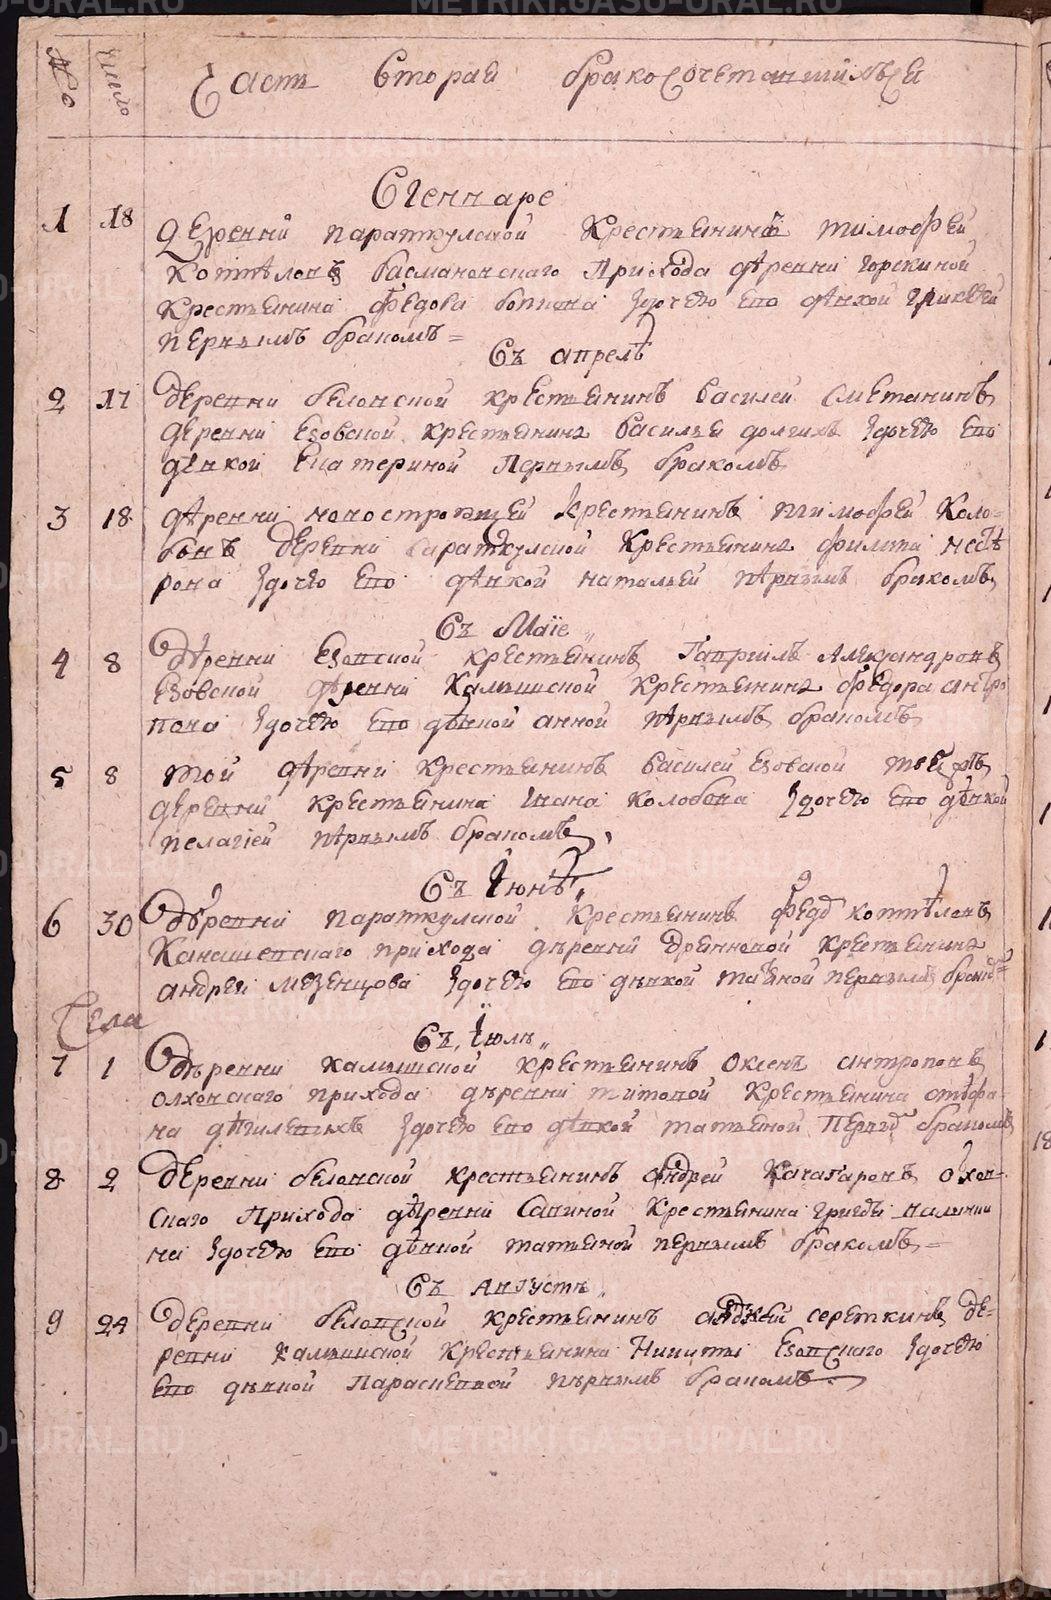 №
Число
Часть Вторая бракосочетавшихься
В Генваре
1 18 Деревни параткулской Крестьянинъ тимофей
Котѣловъ басмановскаго Прихода дѣревни горскиной
Крестьянина федора здочерю Его дѣвкой
перьвымъ бракомъ =
Въ апрелѣ
2 17 Деревни бѣловской крестьянинъ Василей Сметанинъ
деревни Езовской крестьянина Василья долгихъ здочерю Его
дѣвкой Екатериной Первымъ бракомъ
3 18 дѣревни новостроящей крестьянинъ тимофей Коло-
бовъ деревни параткулской Крестьянина
рова здочерю Его дѣвкой натальей пѣрвымъ бракомъ
Въ Маїе
4 8 Дѣревни Езовской крестьянинъ Гаврилъ Александровъ
Езовской дѣревни Камышской крестьянина федора антро
пова здочерю Его дѣвкой анной пѣрвымъ бракомъ
5 8 той дѣревни крестьянинъ Василей Езовской тоежъ
деревни крестьянина Ивана Колобова здочерю Его дѣвкой
пелагїей пѣрвымъ бракомъ
Въ Іюнѣ
6 30 Дѣревни параткулской Крестьянинъ федоръ котѣловъ
Канашевскаго прихода дѣревни Древневой крестьянина
андрея мезенцова здочерю Его дѣвкой первымъ бракомъ
Села
Въ Іюлѣ
7 1 Дѣревни камышской крестьянинъ антроповъ
прихода дѣревни титовой Крестьянина стефа-
на здочерю Его дѣвкой татьяной Первымъ бракомъ
8 2 деревни бѣловской крестьянинъ андрей Охов-
скаго Прихода дѣревни Савиной Крестьянина
на здочерю Его дѣвкой татьяной первымъ бракомъ =
Въ августѣ
9 24 деревни бѣловской крестьянинъ андрей середкинъ де-
ревни камышской крестьянина Никиты Езовскаго здочерю
Его дѣвкой Параскевией пѣрвымъ бракомъ
METRIKI.GASO-URAL.RU